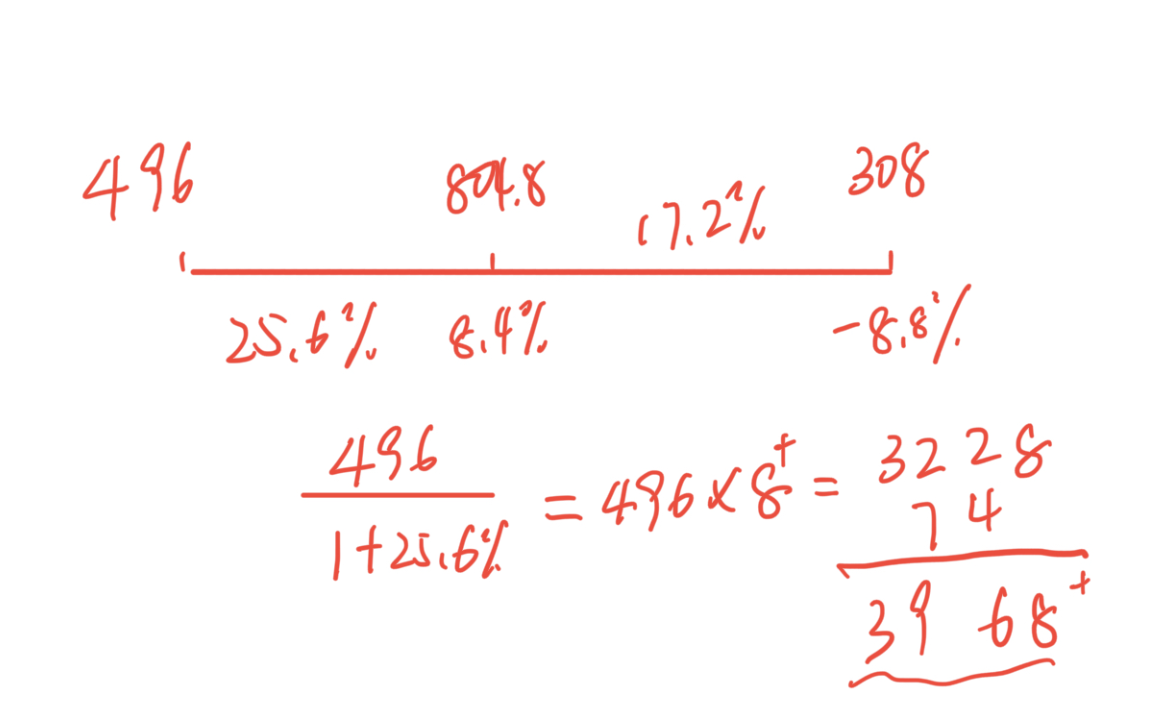 496 804.8 308
17.2%
25.6% 8.4% -8.8%
496
1+25.6%
= 496×8⁺ =
3228
74
3968⁺